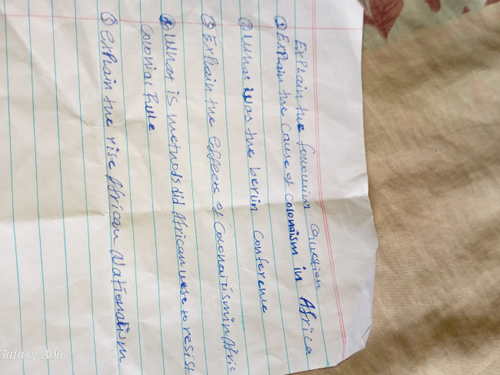 Explain the following question
① Explain the cause of colonism in Africa
② What was the berlin Conference
③ Explain the effects of Colonialism in Afric
④ What is methods did African use to resist
Colonial Rule
⑤ explain the rise African Nationalism
Galaxy A06